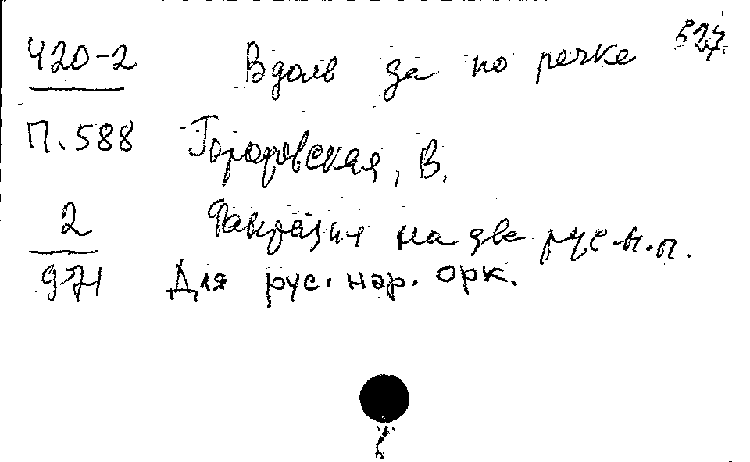 Ч20-2 Вдоль да по речке 527.
П.588 Городовская, В.
2 Фантазия на две рус.н.п.
971 Для рус. нар. орк.